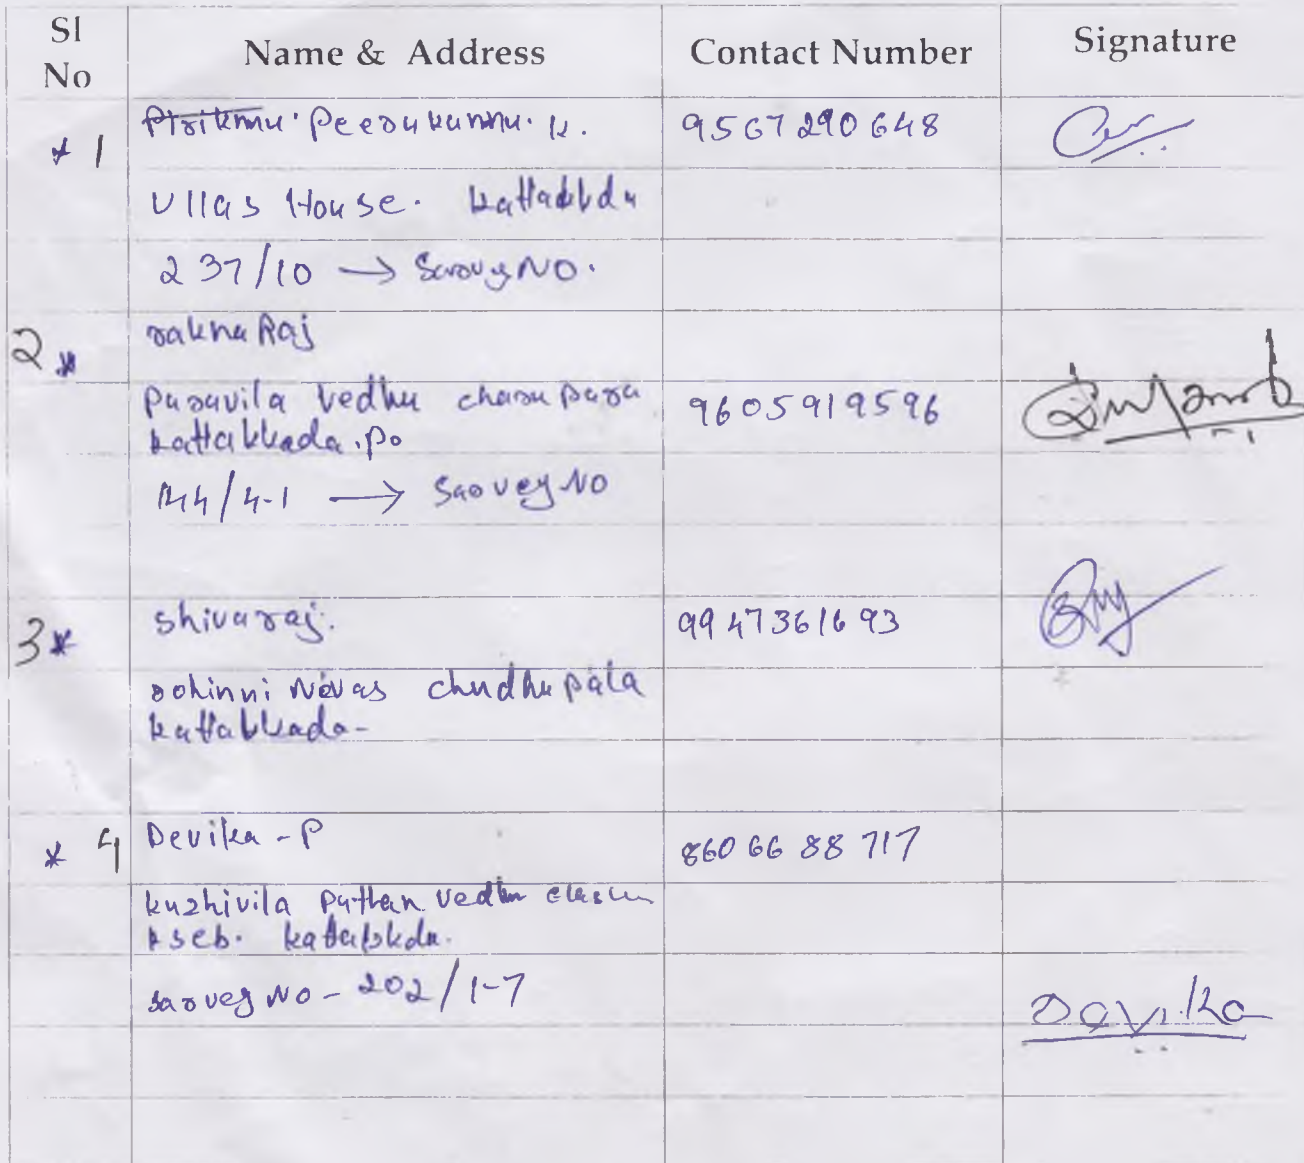 Sl No Name & Address Contact Number Signature
* 1 Peerukunnu. K. 9567290648
Ullas House. kattakkda
237/10 → Survey NO.
2 * rakna Raj
Paravila vedhu charupara 9605919596
kattakkada.po
144/4-1 → Sarvey NO
3 * Shivaraj. 9947361693
rohinni Nevas chudhupala
kattakkada-
* 4 Devika - P 8606688717
kuzhivila puthan vedhu
kseb. kattakkda.
sarvey NO - 202/1-7
Devika